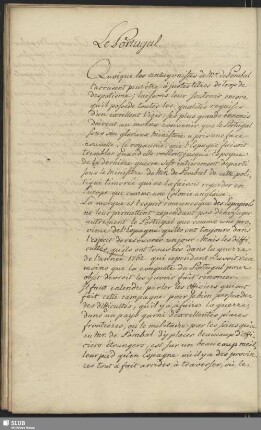 Le Portugal.
Quoique les antagonistes de Mr. de Pombal
l'accusent peut-être à juste titre de trop de
despotisme; laissons leur soutenir encore
qu'il possède toutes les qualités requises
d'un excellent Vizir; ses plus grands ennemis
doivent au moins convenir que le Portugal
sous son glorieux Ministère a pris une face
nouvelle. Ce royaume, que l'Espagne faisoit
trembler quand elle vouloit jusque l'époque
de sa derniere guerre s'est entierement departi
sous le Ministère de Mr. de Pombal de cette poli-
tique timorée qui ne la faisoit regarder en
Europe que comme une Colonie angloise.
La morgue et l'esprit romanesque des Espagnols
ne leur permettent cependant pas d'envisager
autrement le Portugal que comme une pro-
vince de l'Espagne qu'ils ont toujours dans
l'esprit de recouvrer un jour. Mais les diffi-
cultés, qu'ils ont trouvées dans la guerre
de l'année 1762. qui cependant n'avoit rien
moins que la conquête du Portugal pour
objet devroit les y faire faire renoncer.
Il faut entendre parler les officiers qui ont
fait cette campagne pour se bien persuader
des difficultés, qu'il y a à faire la guerre
dans un pays garni d'excellentes places
frontières, ou le militaire par les soins qu'a eu
Mr. de Pombal d'y placer beaucoup d'offi-
ciers étrangers, est sur un beaucoup meil-
leur pied qu'en Espagne ou il y a des provin-
ces tout à fait arides à traverser, où le
SLUB